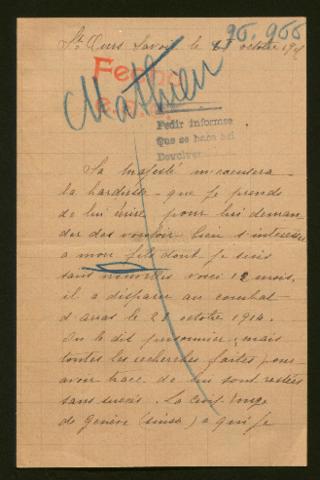 96.966
St Ours Savoie le octobre 191
Fecha
Mathieu
Pedir informes
Que se haga así
Devolver
Sa Majesté m'excusera
la hardiesse que je prends
de lui écrire pour lui deman
der des vouloir bien s'interesser
a mon fils dont je suis
sans nouvelles voici 12 mois,
il a disparu au combat
d'arras le 21 octobre 1914.
On le dit prisonnier, mais
toutes les recherches faites pour
avoir trace de lui sont restées
sans succès. La croix Rouge
de Genève (suisse) a qui je